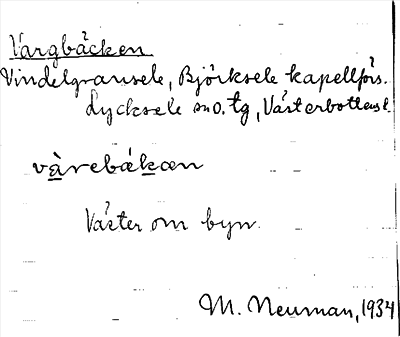 Vargbäcken
Vindelgransele, Björksele kapellförs.
Lycksele sno. tg, Västerbottens l.
vàrebákæn
Väster om byn.
M. Neuman, 1934